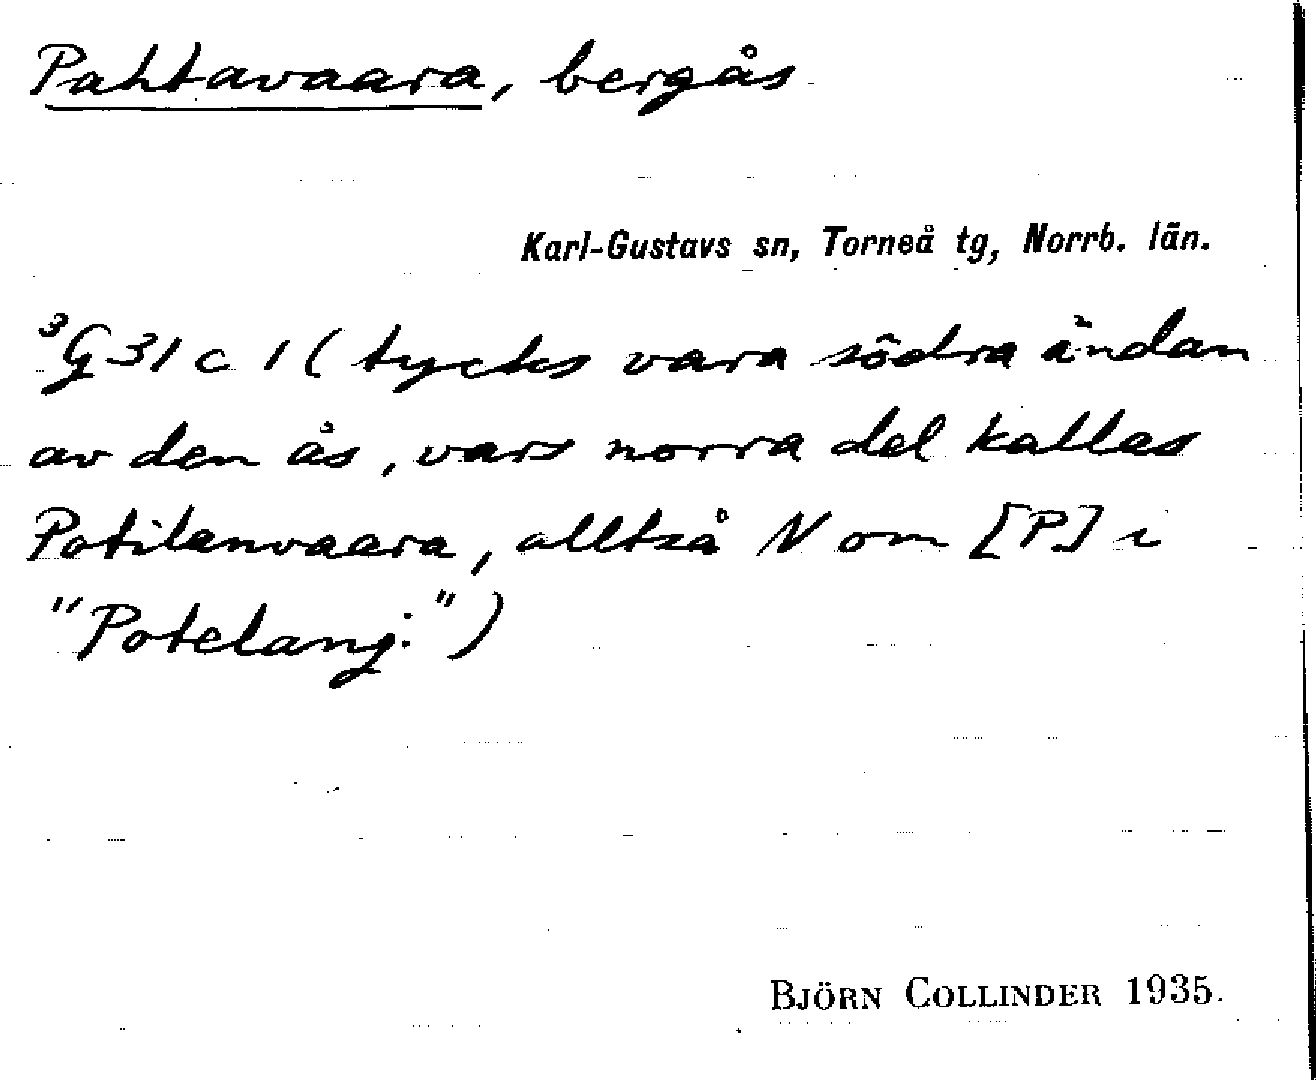 Pahtavaara, bergås
Karl-Gustavs sn, Torneå tg, Norrb. län.
³G31c1 (tycks vara södra ändan
av den ås, vars norra del kallas
Potilanvaara, alltså N om [P] i
"Potelanj.")
BJÖRN COLLINDER 1935.